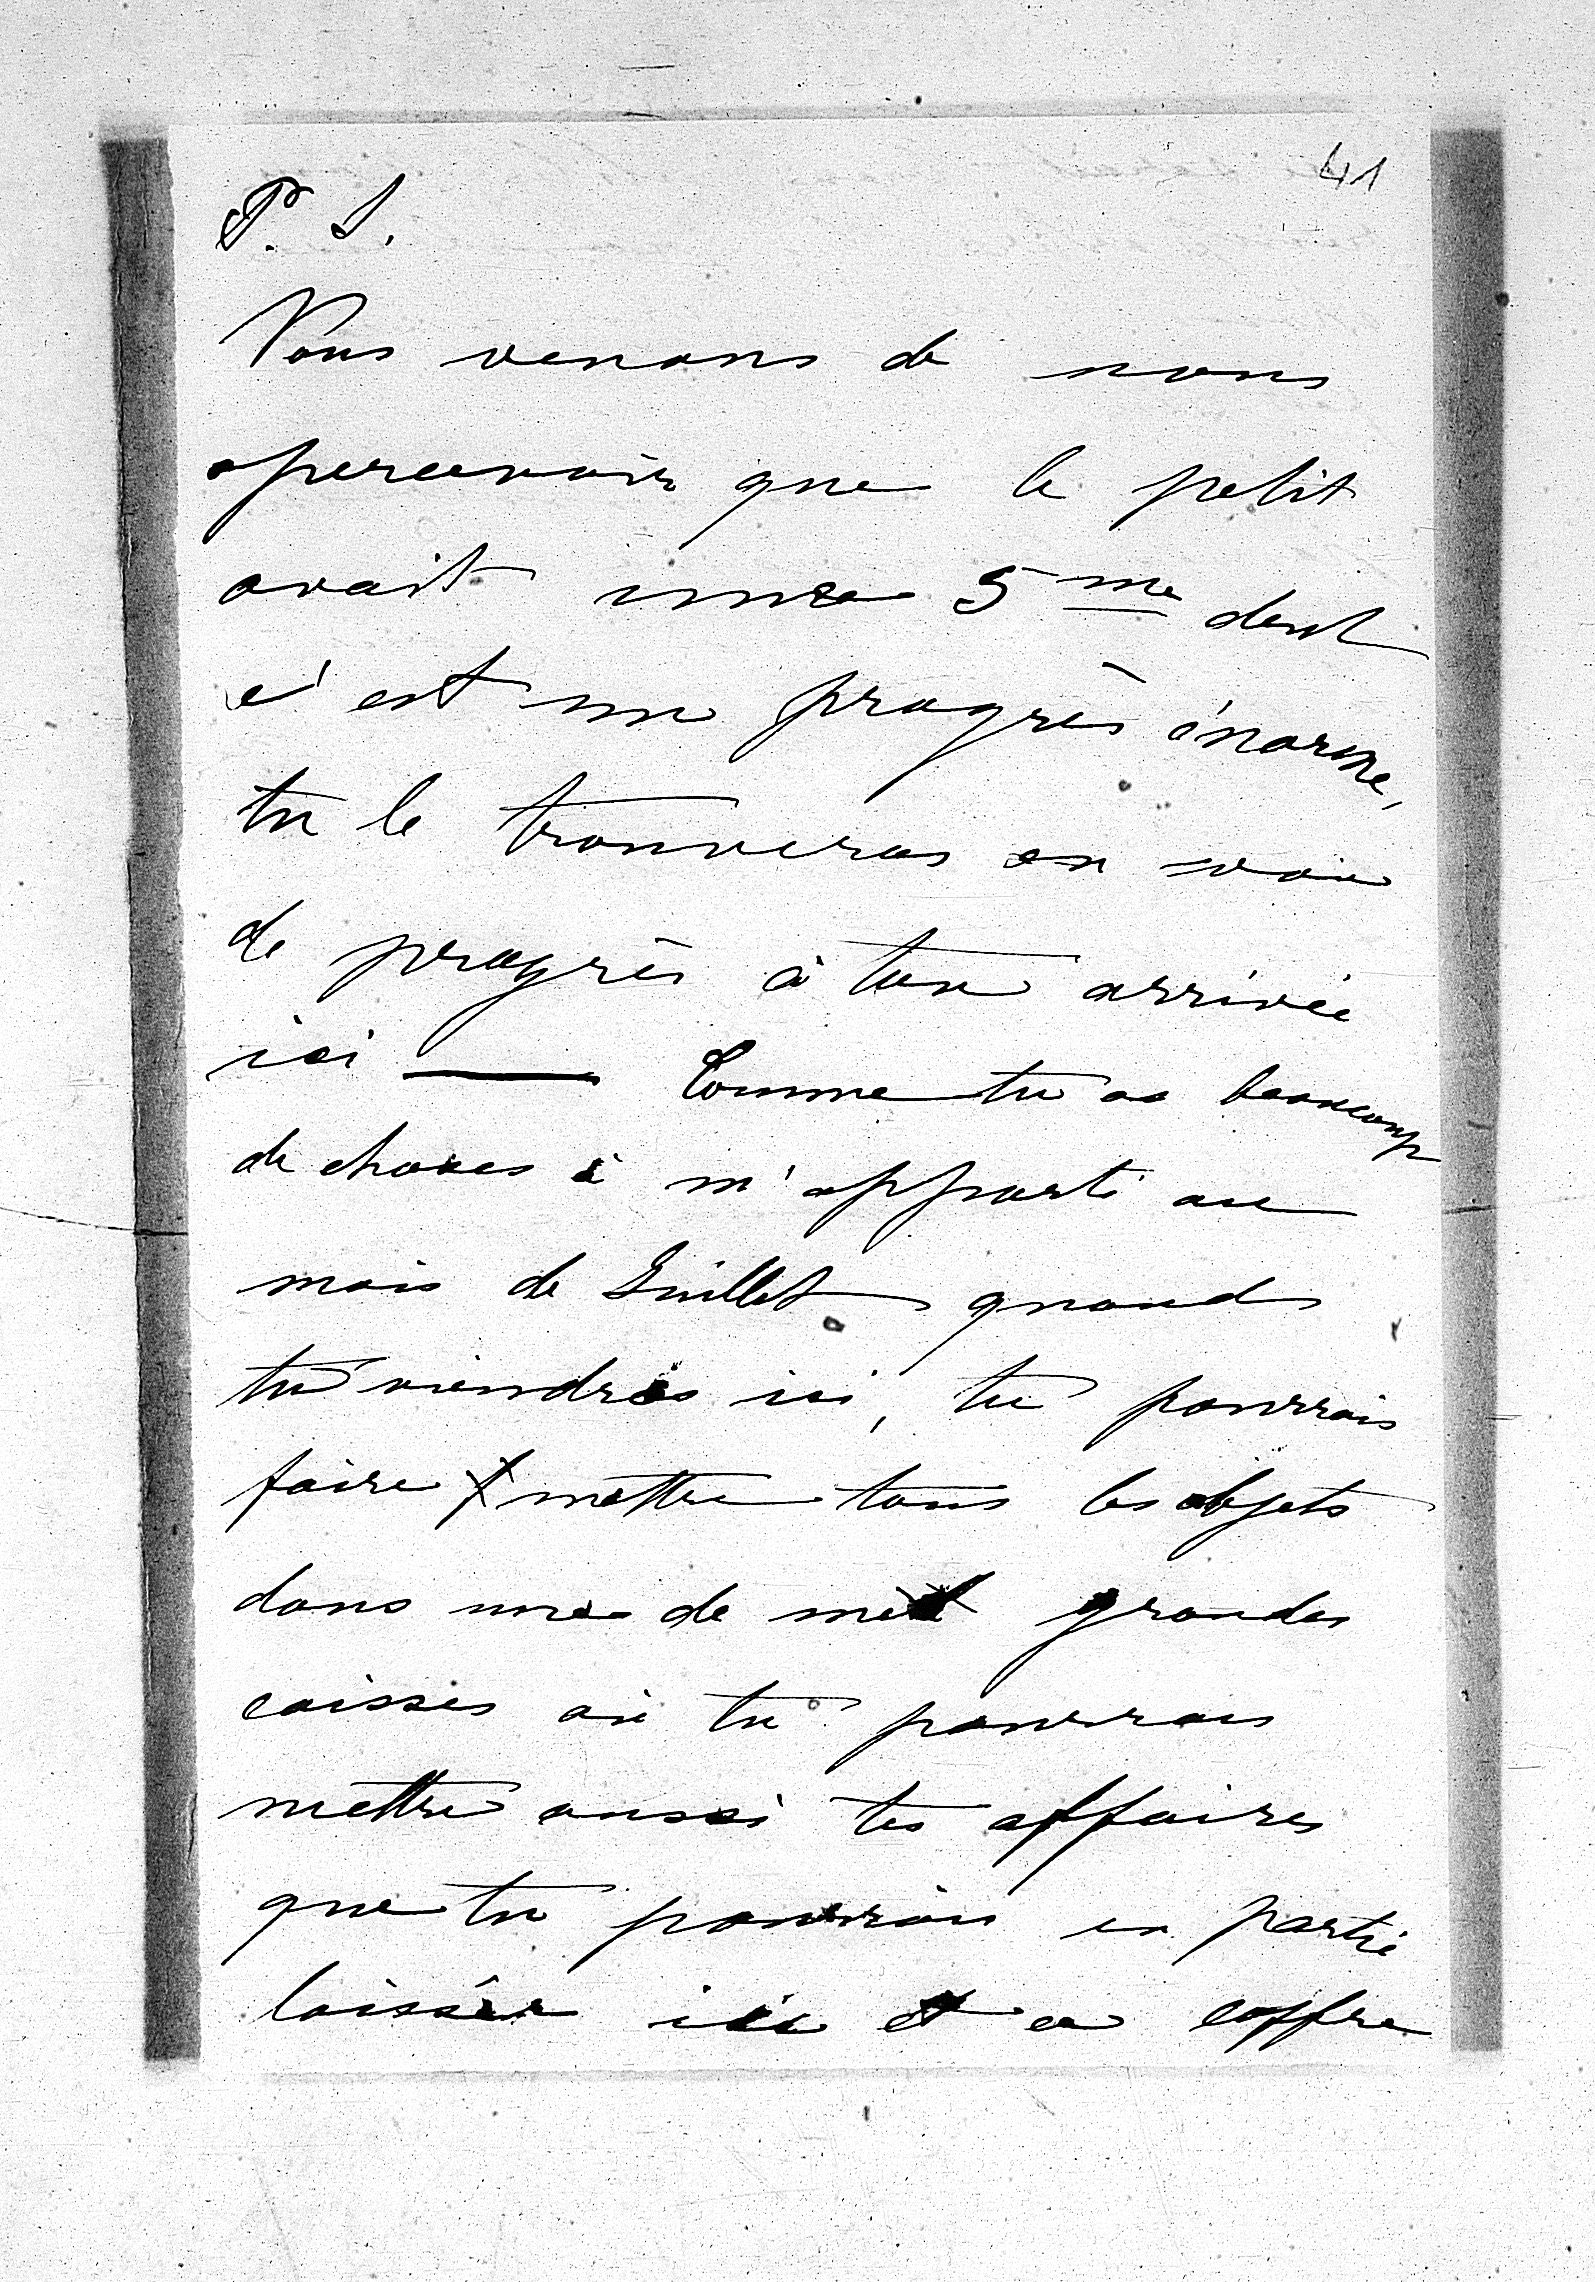 41
P. S.
Nous venons de nous
apercevoir que le petit
avait une 5me dent
c'est un progrès énorme,
tu le trouveras en voie
de progrès à ton arrivée
ici — Comme tu as beaucoup
de choses à m'apporté au
mois de Juillet quand
tu viendras ici, tu pourrais
faire mettre tous les objets
dans une de mes grandes
caisses où tu pourrais
mettre aussi tes affaires
que tu pourrais en partie
laisser ici et ce coffre